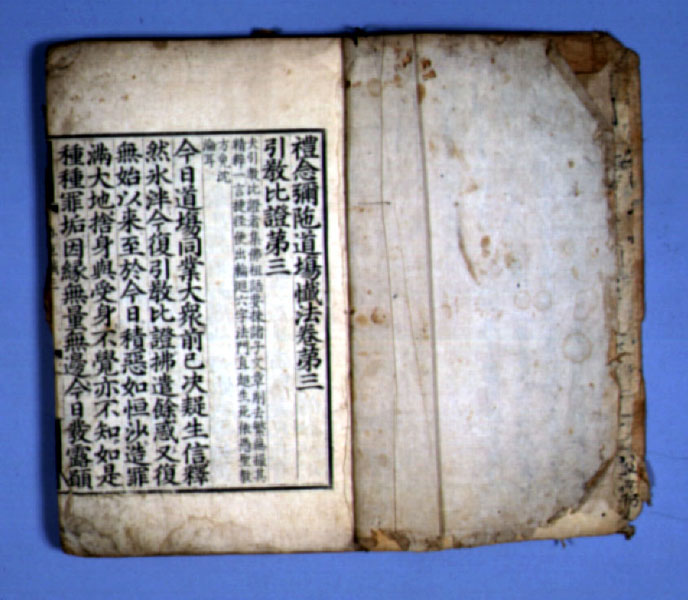 禮念彌陁道場懺法卷第三
引教比證第三
夫引教比證者集佛祖語要採諸子文章削去繁蕪撮其
精粹一言捷徑便出輪廻六字法門直超生死依憑聖教
方免沈
淪耳
今日道場同業大衆前已决疑生信釋
然氷泮今復引教比證拂遣餘惑又復
無始以來至於今日積惡如恒沙造罪
滿大地捨身與受身不覺亦不知如是
種種罪垢因緣無量無邊今日發露願